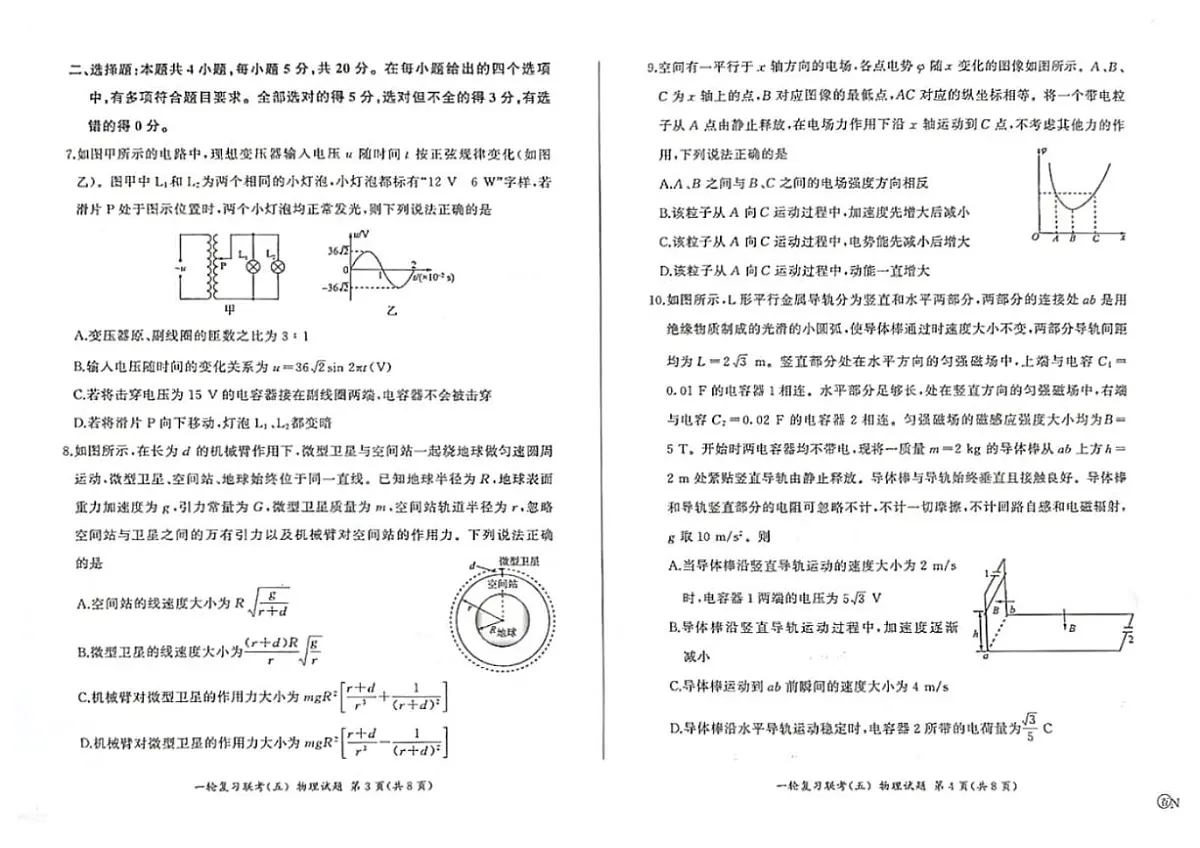 二、选择题:本题共4小题,每小题5分,共20分。在每小题给出的四个选项
中,有多项符合题目要求。全部选对的得5分,选对但不全的得3分,有选
错的得0分。
7.如图甲所示的电路中,理想变压器输入电压u随时间t按正弦规律变化(如图
乙)。图甲中L₁和L₂为两个相同的小灯泡,小灯泡都标有“12 V 6 W”字样,若
滑片P处于图示位置时,两个小灯泡均正常发光,则下列说法正确的是
~u P L₁ L₂
甲
u/V
36√2
0 1 2 t/(×10⁻² s)
-36√2
乙
A.变压器原、副线圈的匝数之比为3∶1
B.输入电压随时间的变化关系为u=36√2sin 2πt(V)
C.若将击穿电压为15 V的电容器接在副线圈两端,电容器不会被击穿
D.若将滑片P向下移动,灯泡L₁、L₂都变暗
8.如图所示,在长为d的机械臂作用下,微型卫星与空间站一起绕地球做匀速圆周
运动,微型卫星、空间站、地球始终位于同一直线。已知地球半径为R,地球表面
重力加速度为g,引力常量为G,微型卫星质量为m,空间站轨道半径为r,忽略
空间站与卫星之间的万有引力以及机械臂对空间站的作用力。下列说法正确
的是
d 微型卫星
空间站
r
R 地球
A.空间站的线速度大小为R√(g/(r+d))
B.微型卫星的线速度大小为((r+d)R/r)√(g/r)
C.机械臂对微型卫星的作用力大小为mgR²[(r+d)/r³+1/(r+d)²]
D.机械臂对微型卫星的作用力大小为mgR²[(r+d)/r³-1/(r+d)²]
一轮复习联考(五) 物理试题 第3页(共8页)
9.空间有一平行于x轴方向的电场,各点电势φ随x变化的图像如图所示。A、B、
C为x轴上的点,B对应图像的最低点,AC对应的纵坐标相等。将一个带电粒
子从A点由静止释放,在电场力作用下沿x轴运动到C点,不考虑其他力的作
用,下列说法正确的是
A.A、B之间与B、C之间的电场强度方向相反
B.该粒子从A向C运动过程中,加速度先增大后减小
C.该粒子从A向C运动过程中,电势能先减小后增大
D.该粒子从A向C运动过程中,动能一直增大
φ
O A B C x
10.如图所示,L形平行金属导轨分为竖直和水平两部分,两部分的连接处ab是用
绝缘物质制成的光滑的小圆弧,使导体棒通过时速度大小不变,两部分导轨间距
均为L=2√3 m。竖直部分处在水平方向的匀强磁场中,上端与电容C₁=
0.01 F的电容器1相连。水平部分足够长,处在竖直方向的匀强磁场中,右端
与电容C₂=0.02 F的电容器2相连。匀强磁场的磁感应强度大小均为B=
5 T。开始时两电容器均不带电,现将一质量m=2 kg的导体棒从ab上方h=
2 m处紧贴竖直导轨由静止释放。导体棒与导轨始终垂直且接触良好。导体棒
和导轨竖直部分的电阻可忽略不计,不计一切摩擦,不计回路自感和电磁辐射,
g取10 m/s²。则
A.当导体棒沿竖直导轨运动的速度大小为2 m/s
时,电容器1两端的电压为5√3 V
B.导体棒沿竖直导轨运动过程中,加速度逐渐
减小
C.导体棒运动到ab前瞬间的速度大小为4 m/s
D.导体棒沿水平导轨运动稳定时,电容器2所带的电荷量为√3/5 C
1
B b
h B 2
a
一轮复习联考(五) 物理试题 第4页(共8页)